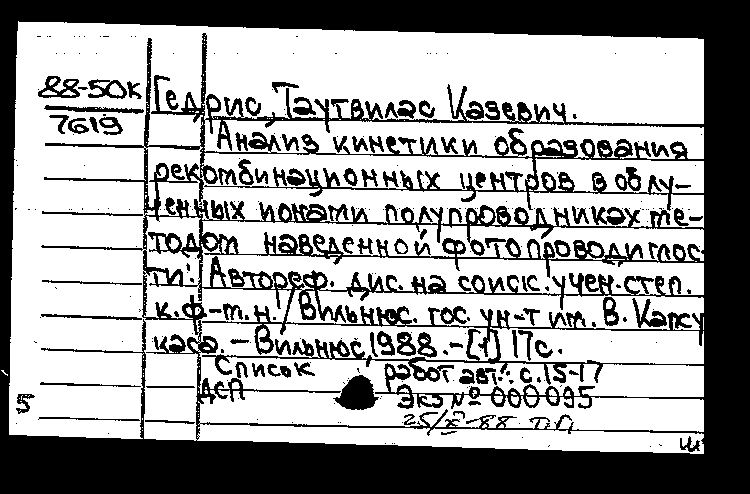 88-50к
7619
Гедрис, Таутвилас Казевич.
Анализ кинетики образования
рекомбинационных центров в облу-
ченных ионами полупроводниках ме-
тодом наведенной фотопроводимос-
ти: Автореф. дис. на соиск. учен. степ.
к.ф-м.н. / Вильнюс. гос. ун-т им. В. Капсу
каса. – Вильнюс, 1988. – [1] 17с.
Список работ авт.: с.15-17
ДСП Экз № 000095
5
25/X-88